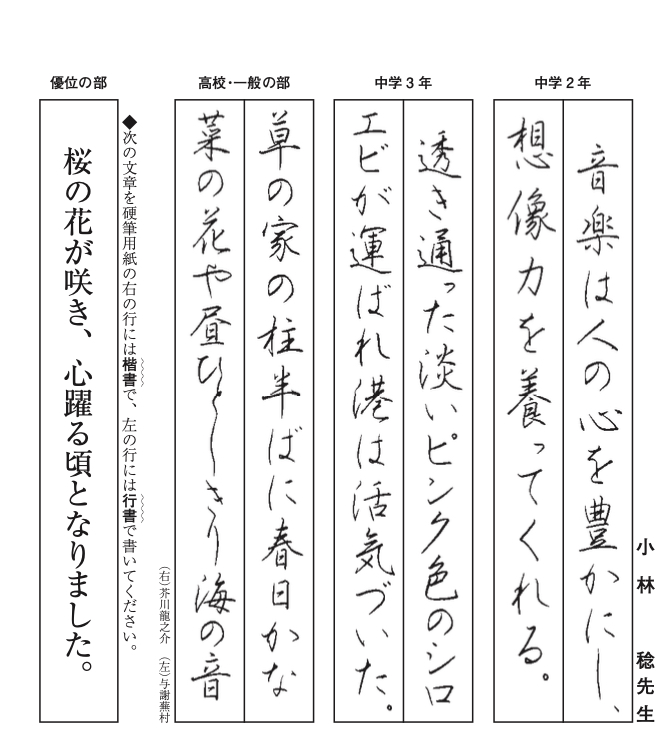 中学2年
音楽は人の心を豊かにし、
想像力を養ってくれる。
小林 稔先生
中学3年
透き通った淡いピンク色のシロ
エビが運ばれ港は活気づいた。
高校・一般の部
草の家の柱半ばに春日かな
菜の花や昼ひとしきり海の音
(右)芥川龍之介 (左)与謝蕪村
優位の部
◆次の文章を硬筆用紙の右の行には楷書で、左の行には行書で書いてください。
桜の花が咲き、心躍る頃となりました。